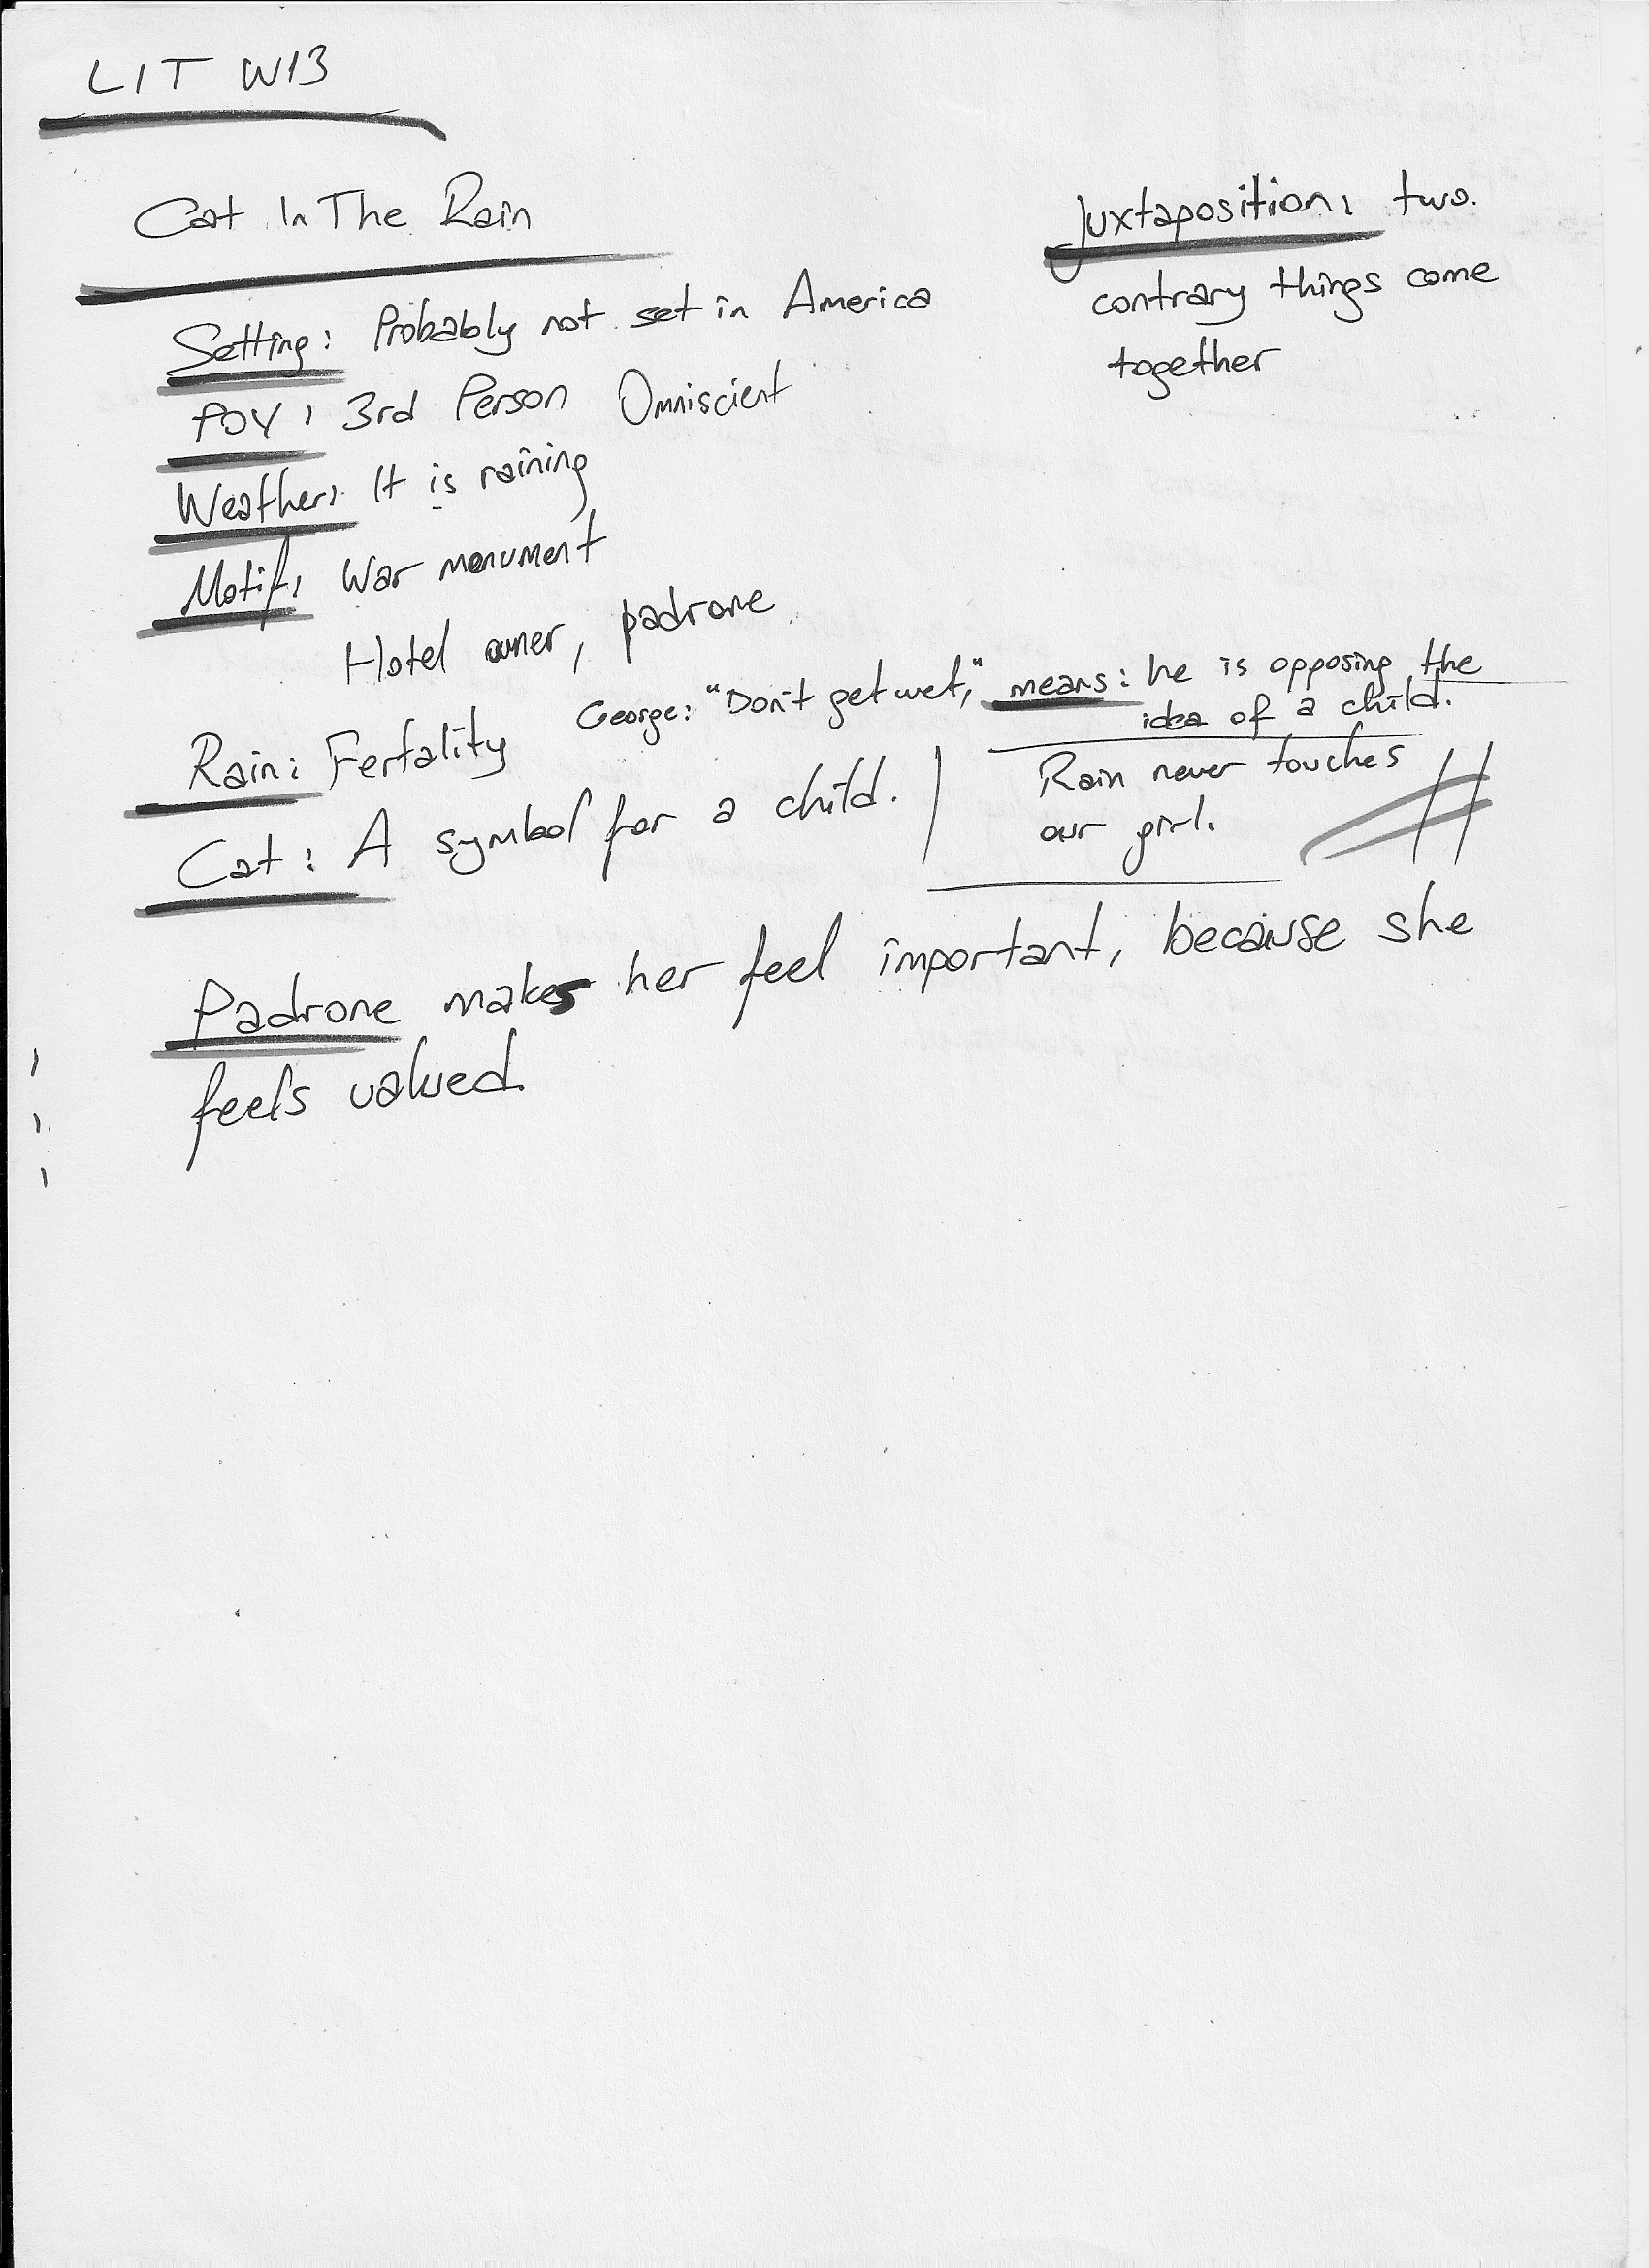 LIT W13
Cat In The Rain
Juxtaposition: two
contrary things come
together
Setting: Probably not set in America
POV: 3rd Person Omniscient
Weather: It is raining
Motif: War monument
Hotel owner, padrone
George: "Don't get wet," means: he is opposing the
idea of a child.
Rain: Fertality
Rain never touches
our girl.
Cat: A symbol for a child.
Padrone makes her feel important, because she
feels valued.